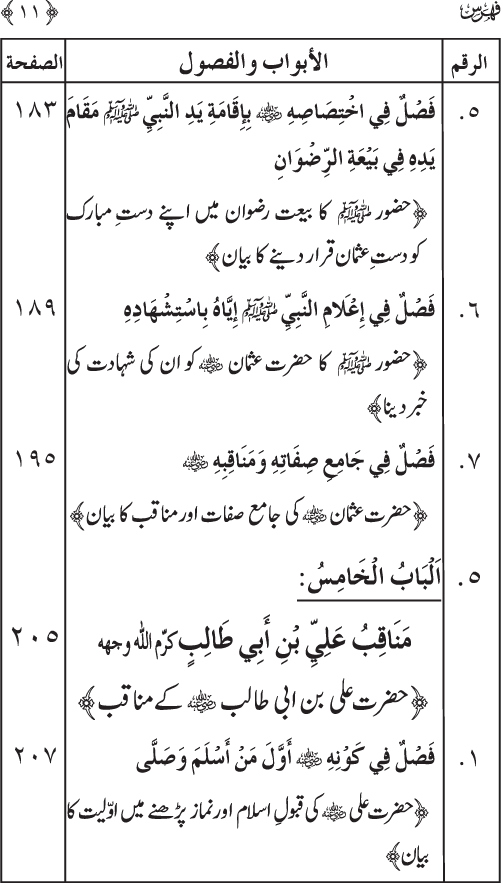 فہرس ﴿١١﴾
الرقم الأبواب والفصول الصفحة
٥. فَصْلٌ فِي اخْتِصَاصِهِ رضي الله عنه بِإِقَامَةِ يَدِ النَّبِيِّ ﷺ مَقَامَ ١٨٣
يَدِهِ فِي بَيْعَةِ الرِّضْوَانِ
﴿حضور ﷺ کا بیعت رضوان میں اپنے دستِ مبارک
کو دستِ عثمان قرار دینے کا بیان﴾
٦. فَصْلٌ فِي إِعْلَامِ النَّبِيِّ ﷺ إِيَّاهُ بِاسْتِشْهَادِهِ ١٨٩
﴿حضور ﷺ کا حضرت عثمان رضي الله عنه کو ان کی شہادت کی
خبر دینا﴾
٧. فَصْلٌ فِي جَامِعِ صِفَاتِهِ وَمَنَاقِبِهِ رضي الله عنه ١٩٥
﴿حضرت عثمان رضي الله عنه کی جامع صفات اور مناقب کا بیان﴾
٥. اَلْبَابُ الْخَامِسُ:
مَنَاقِبُ عَلِيِّ بْنِ أَبِي طَالِبٍ کرّم اللہ وجهه ٢٠٥
﴿حضرت علی بن ابی طالب رضي الله عنه کے مناقب﴾
١. فَصْلٌ فِي كَوْنِهِ رضي الله عنه أَوَّلَ مَنْ أَسْلَمَ وَصَلَّى ٢٠٧
﴿حضرت علی رضي الله عنه کی قبولِ اسلام اور نماز پڑھنے میں اوّلیت کا
بیان﴾